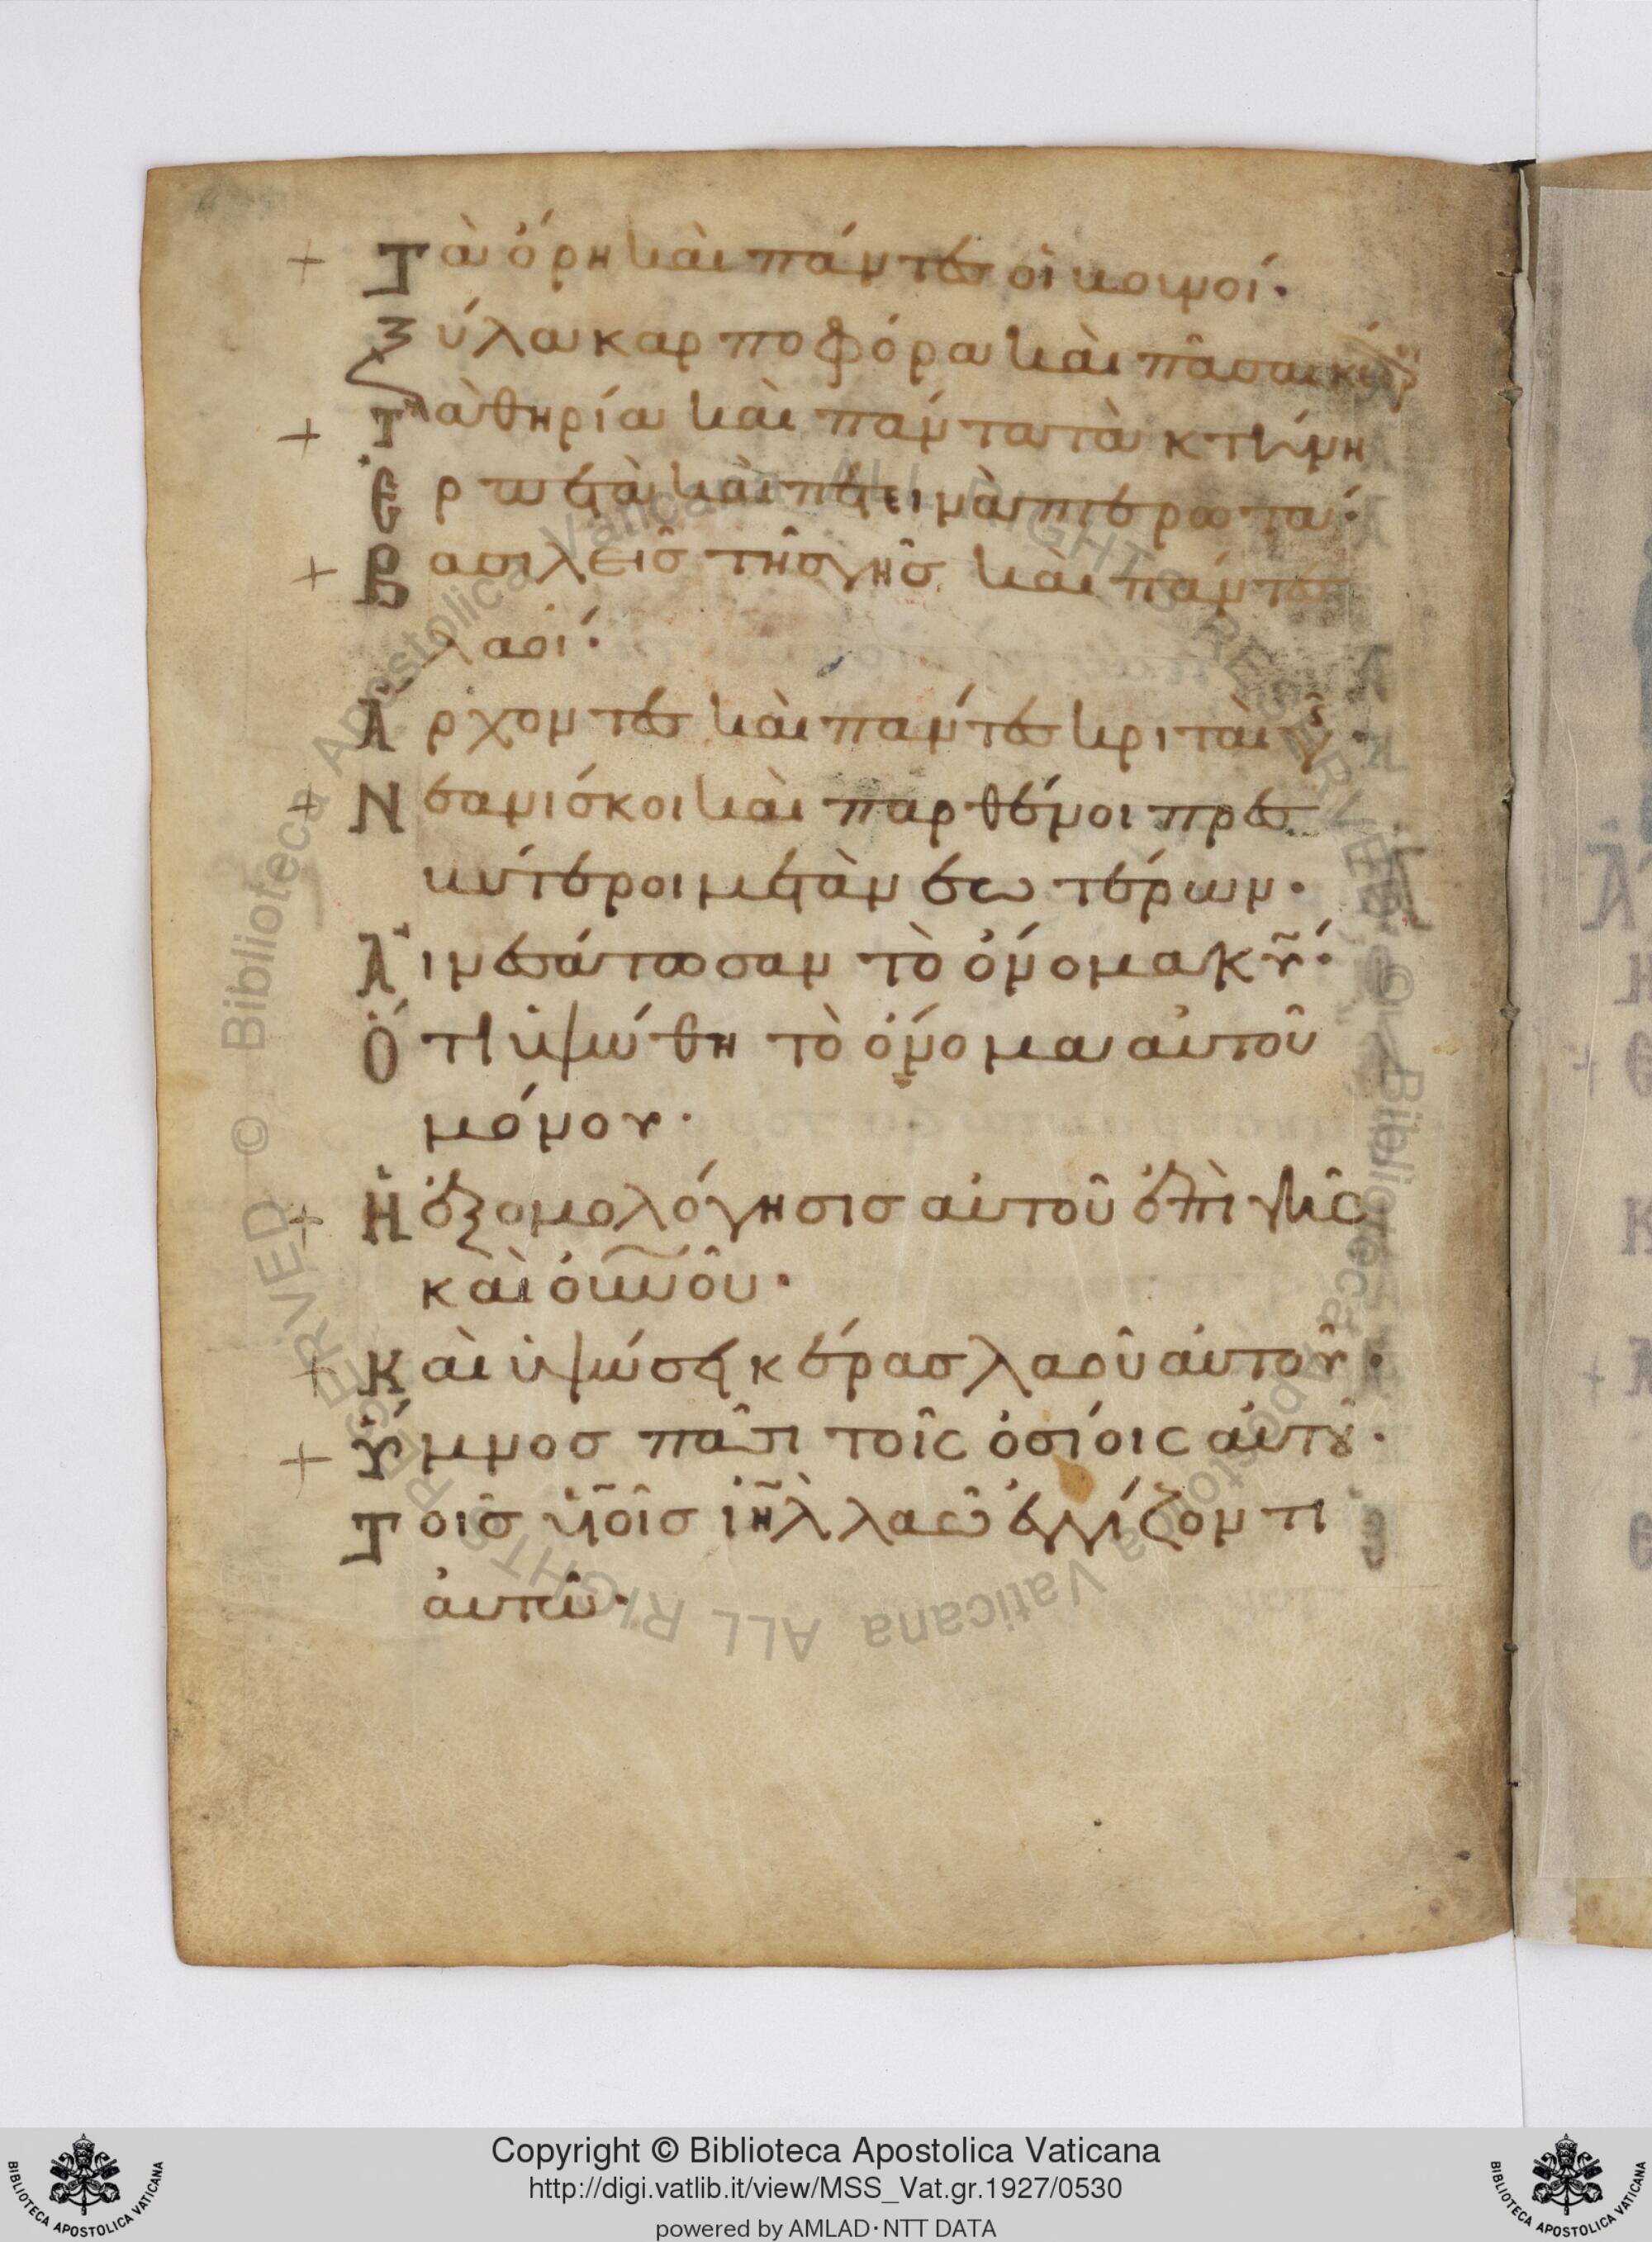 + Τὰ ὄρη καὶ πάντες οἱ βουνοί·
Ξύλα καρποφόρα καὶ πᾶσαι κέδροι
+ Τὰ θηρία καὶ πάντα τὰ κτήνη
Ερπετὰ καὶ πετεινὰ πτερωτά·
+ Βασιλεῖς τῆς γῆς καὶ πάντες
λαοί·
Αρχοντες καὶ πάντες κριταὶ γῆς·
+ Νεανίσκοι καὶ παρθένοι πρεσ
βύτεροι μετὰ νεωτέρων·
Αἰνεσάτωσαν τὸ ὄνομα κῦ·
Ὅτι ὑψώθη τὸ ὄνομα αὐτοῦ
μόνου·
+ Ἡ ἐξομολόγησις αὐτοῦ ἐπὶ γῆς
καὶ οὐνοῦ·
+ Καὶ ὑψώσει κέρας λαοῦ αὐτοῦ·
+ Ὕμνος πᾶσι τοῖς ὁσίοις αὐτοῦ·
Τοῖς υἱοῖς ιηλ λαῷ ἐγγίζοντι
αὐτῷ·
Copyright © Biblioteca Apostolica Vaticana
http://digi.vatlib.it/view/MSS_Vat.gr.1927/0530
powered by AMLAD·NTT DATA
BIBLIOTECA APOSTOLICA VATICANA
BIBLIOTECA APOSTOLICA VATICANA